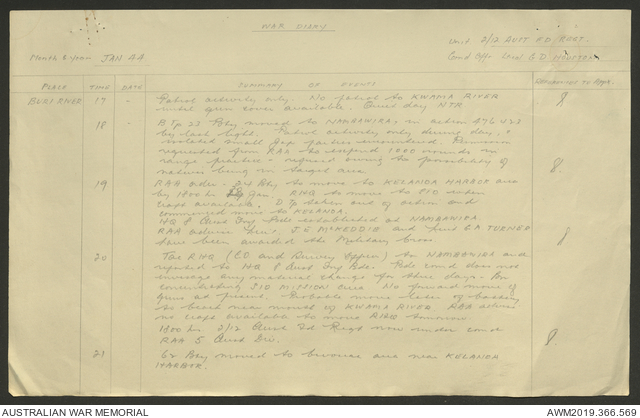 WAR DIARY
Unit 2/12 AUST FD REGT.
Month & Year JAN 44
Comd Offr
PLACE TIME DATE SUMMARY OF EVENTS
17 - Patrol activity only. No patrol to KWAMA RIVER
until gun cover available. Quiet day NTR. 8
18 - B Tp 23 Bty moved to NAMBAWIRA; in action
by last light. Patrol activity only during day;
isolated small Jap parties encountered. Permission
requested from RAA to expend 1000 rounds in
range practice - refused owing to possibility of
natives being in target area. 8.
19 RAA adv. 24 Bty to move to KELANOA HARBOR area
by 1800 hrs Jan, RHQ to move to when
craft available. D Tp taken out of action and
commenced move to KELANOA.
HQ 8 Aust Inf Bde established at NAMBAWIRA
RAA advise Lieut. J.E. McKEDDIE and G A TURNER
have been awarded the Military Cross 8
20 Tac RHQ (CO and Survey Offr) to NAMBAWIRA and
reported to HQ 8 Aust Inf Bde. Bde comd does not
envisage any material change for three days -
concentrating SIO MISSION area. No forward move of
guns at present. Probable move later of battery
to beach near mouth of KWAMA RIVER. RAA advise
no craft available to move RHQ tomorrow.
1800 hrs 2/12 Aust Fd Regt now under comd
RAA 5 Aust Div. 8.
21 62 Bty moved to bivouac area near KELANOA
HARBOR.
AUSTRALIAN WAR MEMORIAL
AWM2019.366.569